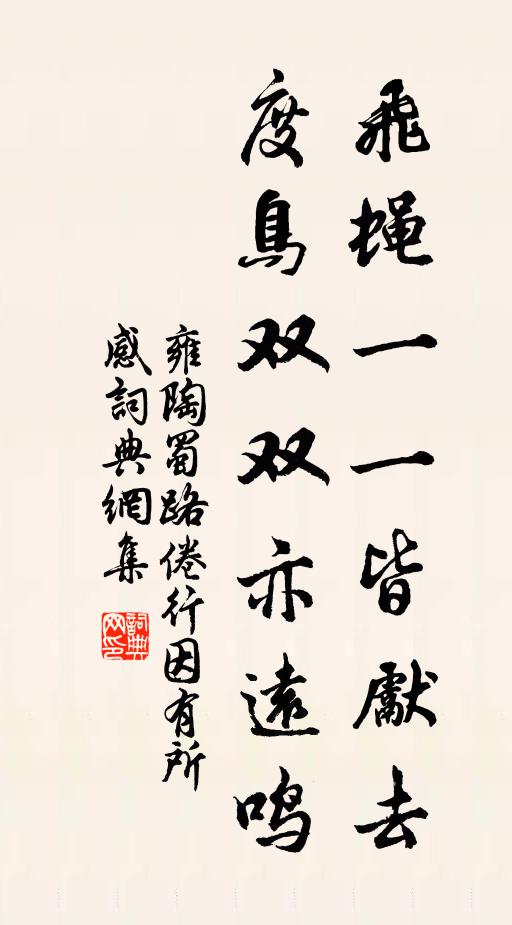 飛蝇一一皆獻去
度鳥双双亦遠鸣
雍陶蜀路倦行因有所
感詞典網集
詞典网印